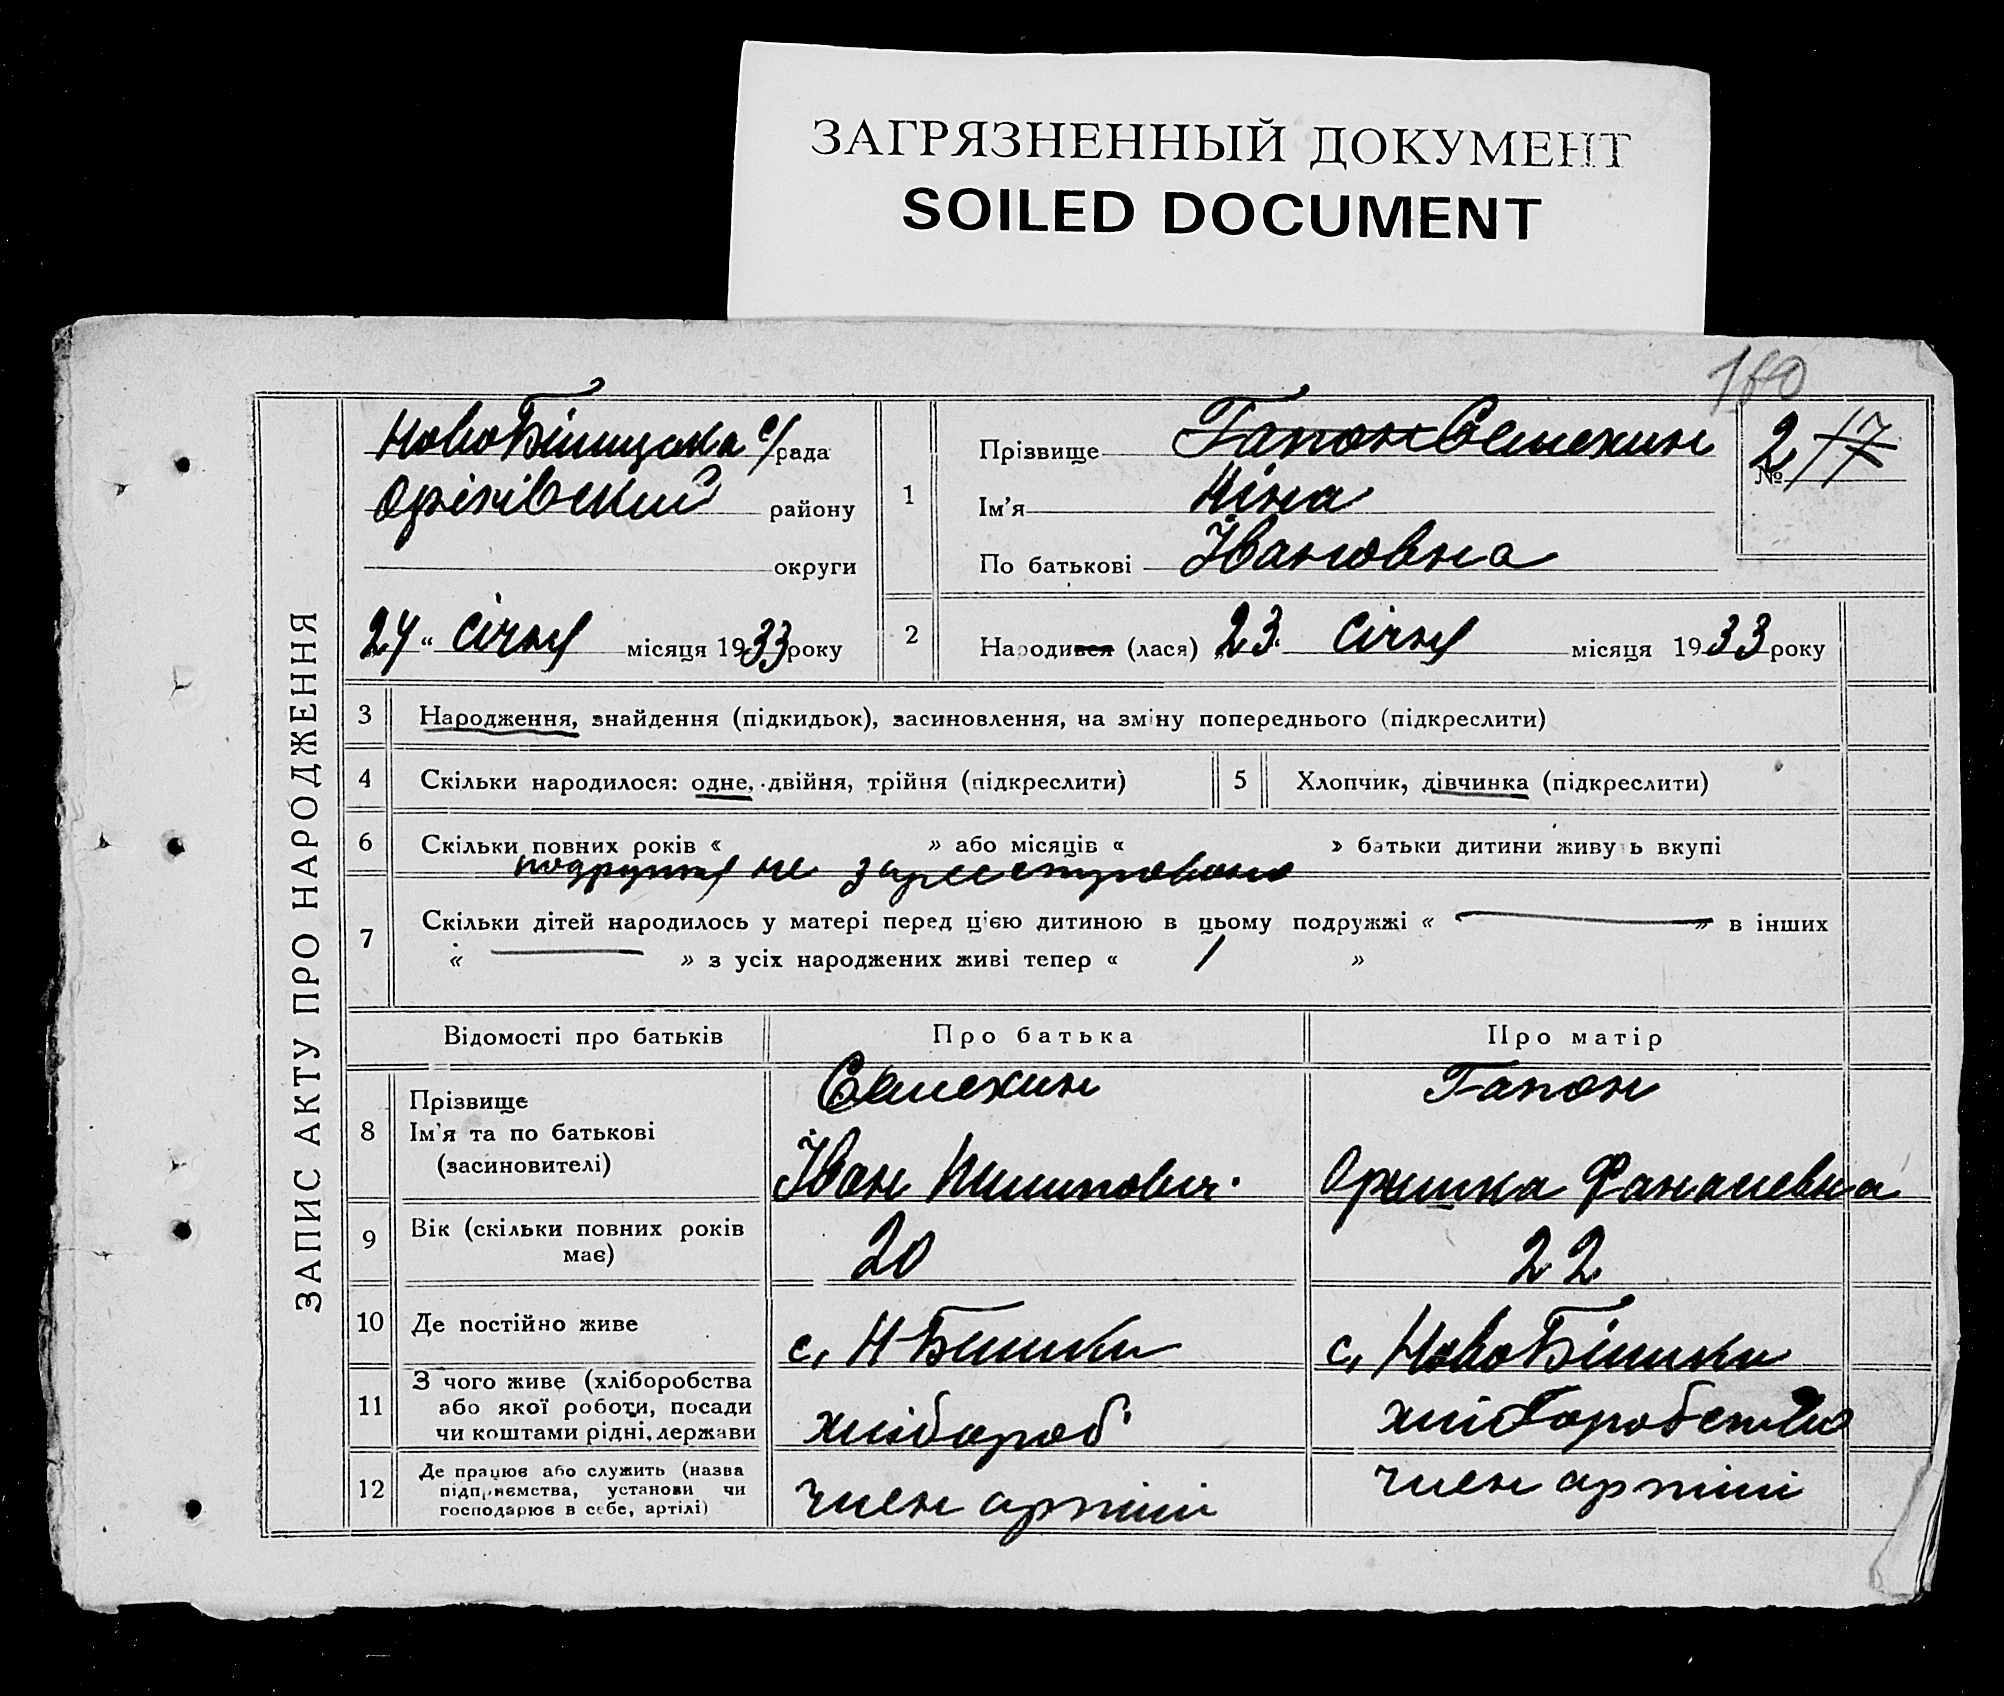 ЗАГРЯЗНЕННЫЙ ДОКУМЕНТ
SOILED DOCUMENT
180
ЗАПИС АКТУ ПРО НАРОДЖЕННЯ
с/рада
Оріхівський району
округи
24 " січня місяця 1933 року
1
Прізвище Гапон Семехин
Ім'я Ніна
По батькові Івановна
№ 2 17
2 Народився (лася) 23 січня місяця 1933 року
3 Народження, знайдення (підкидьок), засиновлення, на зміну попереднього (підкреслити)
4 Скільки народилося: одне, двійня, трійня (підкреслити)
5 Хлопчик, дівчинка (підкреслити)
6 Скільки повних років « » або місяців « » батьки дитини живуть вкупі
не зареєстровано
7 Скільки дітей народилось у матері перед цією дитиною в цьому подружжі « — » в інших
« — » з усіх народжених живі тепер « 1 »
Відомості про батьків Про батька Про матір
8 Прізвище
Ім'я та по батькові
(засиновителі)
Семехин
Іван Пилипович.
Гапон
Оришка Фанасиевна
9 Вік (скільки повних років
має)
20
22
10 Де постійно живе
с, Н-Бішки
с, НовоБішики
11 З чого живе (хліборобства
або якої роботи, посади
чи коштами рідні, держави
хлібороб
хліборобство
12 Де працює або служить (назва
підприємства, установи чи
господарює в себе, артілі)
член артілі
член артілі